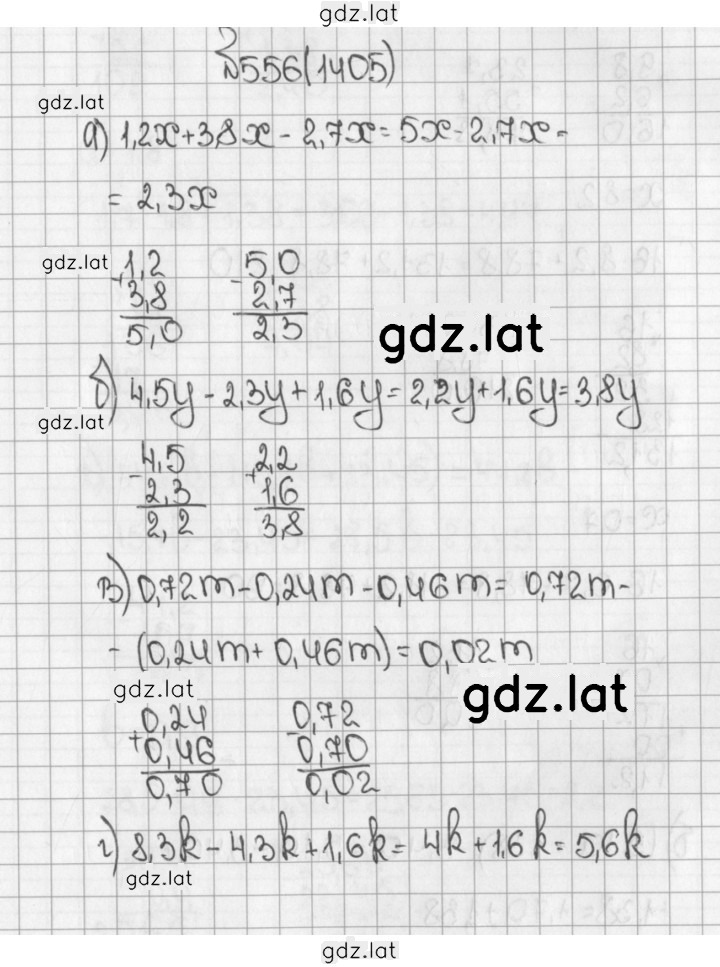 gdz.lat
№556(1405)
gdz.lat
а) 1,2x+3,8x - 2,7x = 5x - 2,7x =
= 2,3x
gdz.lat
1,2 5,0
+ -
3,8 2,7
5,0 2,3
gdz.lat
б) 4,5y - 2,3y + 1,6y = 2,2y + 1,6y = 3,8y
gdz.lat
4,5 2,2
- +
2,3 1,6
2,2 3,8
в) 0,72m - 0,24m - 0,46m = 0,72m -
- (0,24m + 0,46m) = 0,02m
gdz.lat
gdz.lat
0,24 0,72
+ -
0,46 0,70
0,70 0,02
г) 8,3k - 4,3k + 1,6k = 4k + 1,6k = 5,6k
gdz.lat
gdz.lat